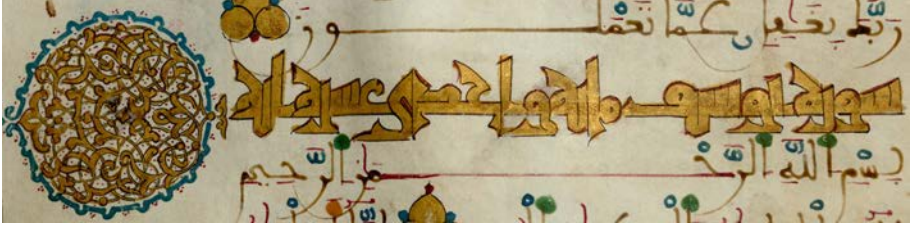 ربك بغفل عما تعملون
سورة يوسف مائة واحدى عشرة اية
بسم الله الرحمن الرحيم